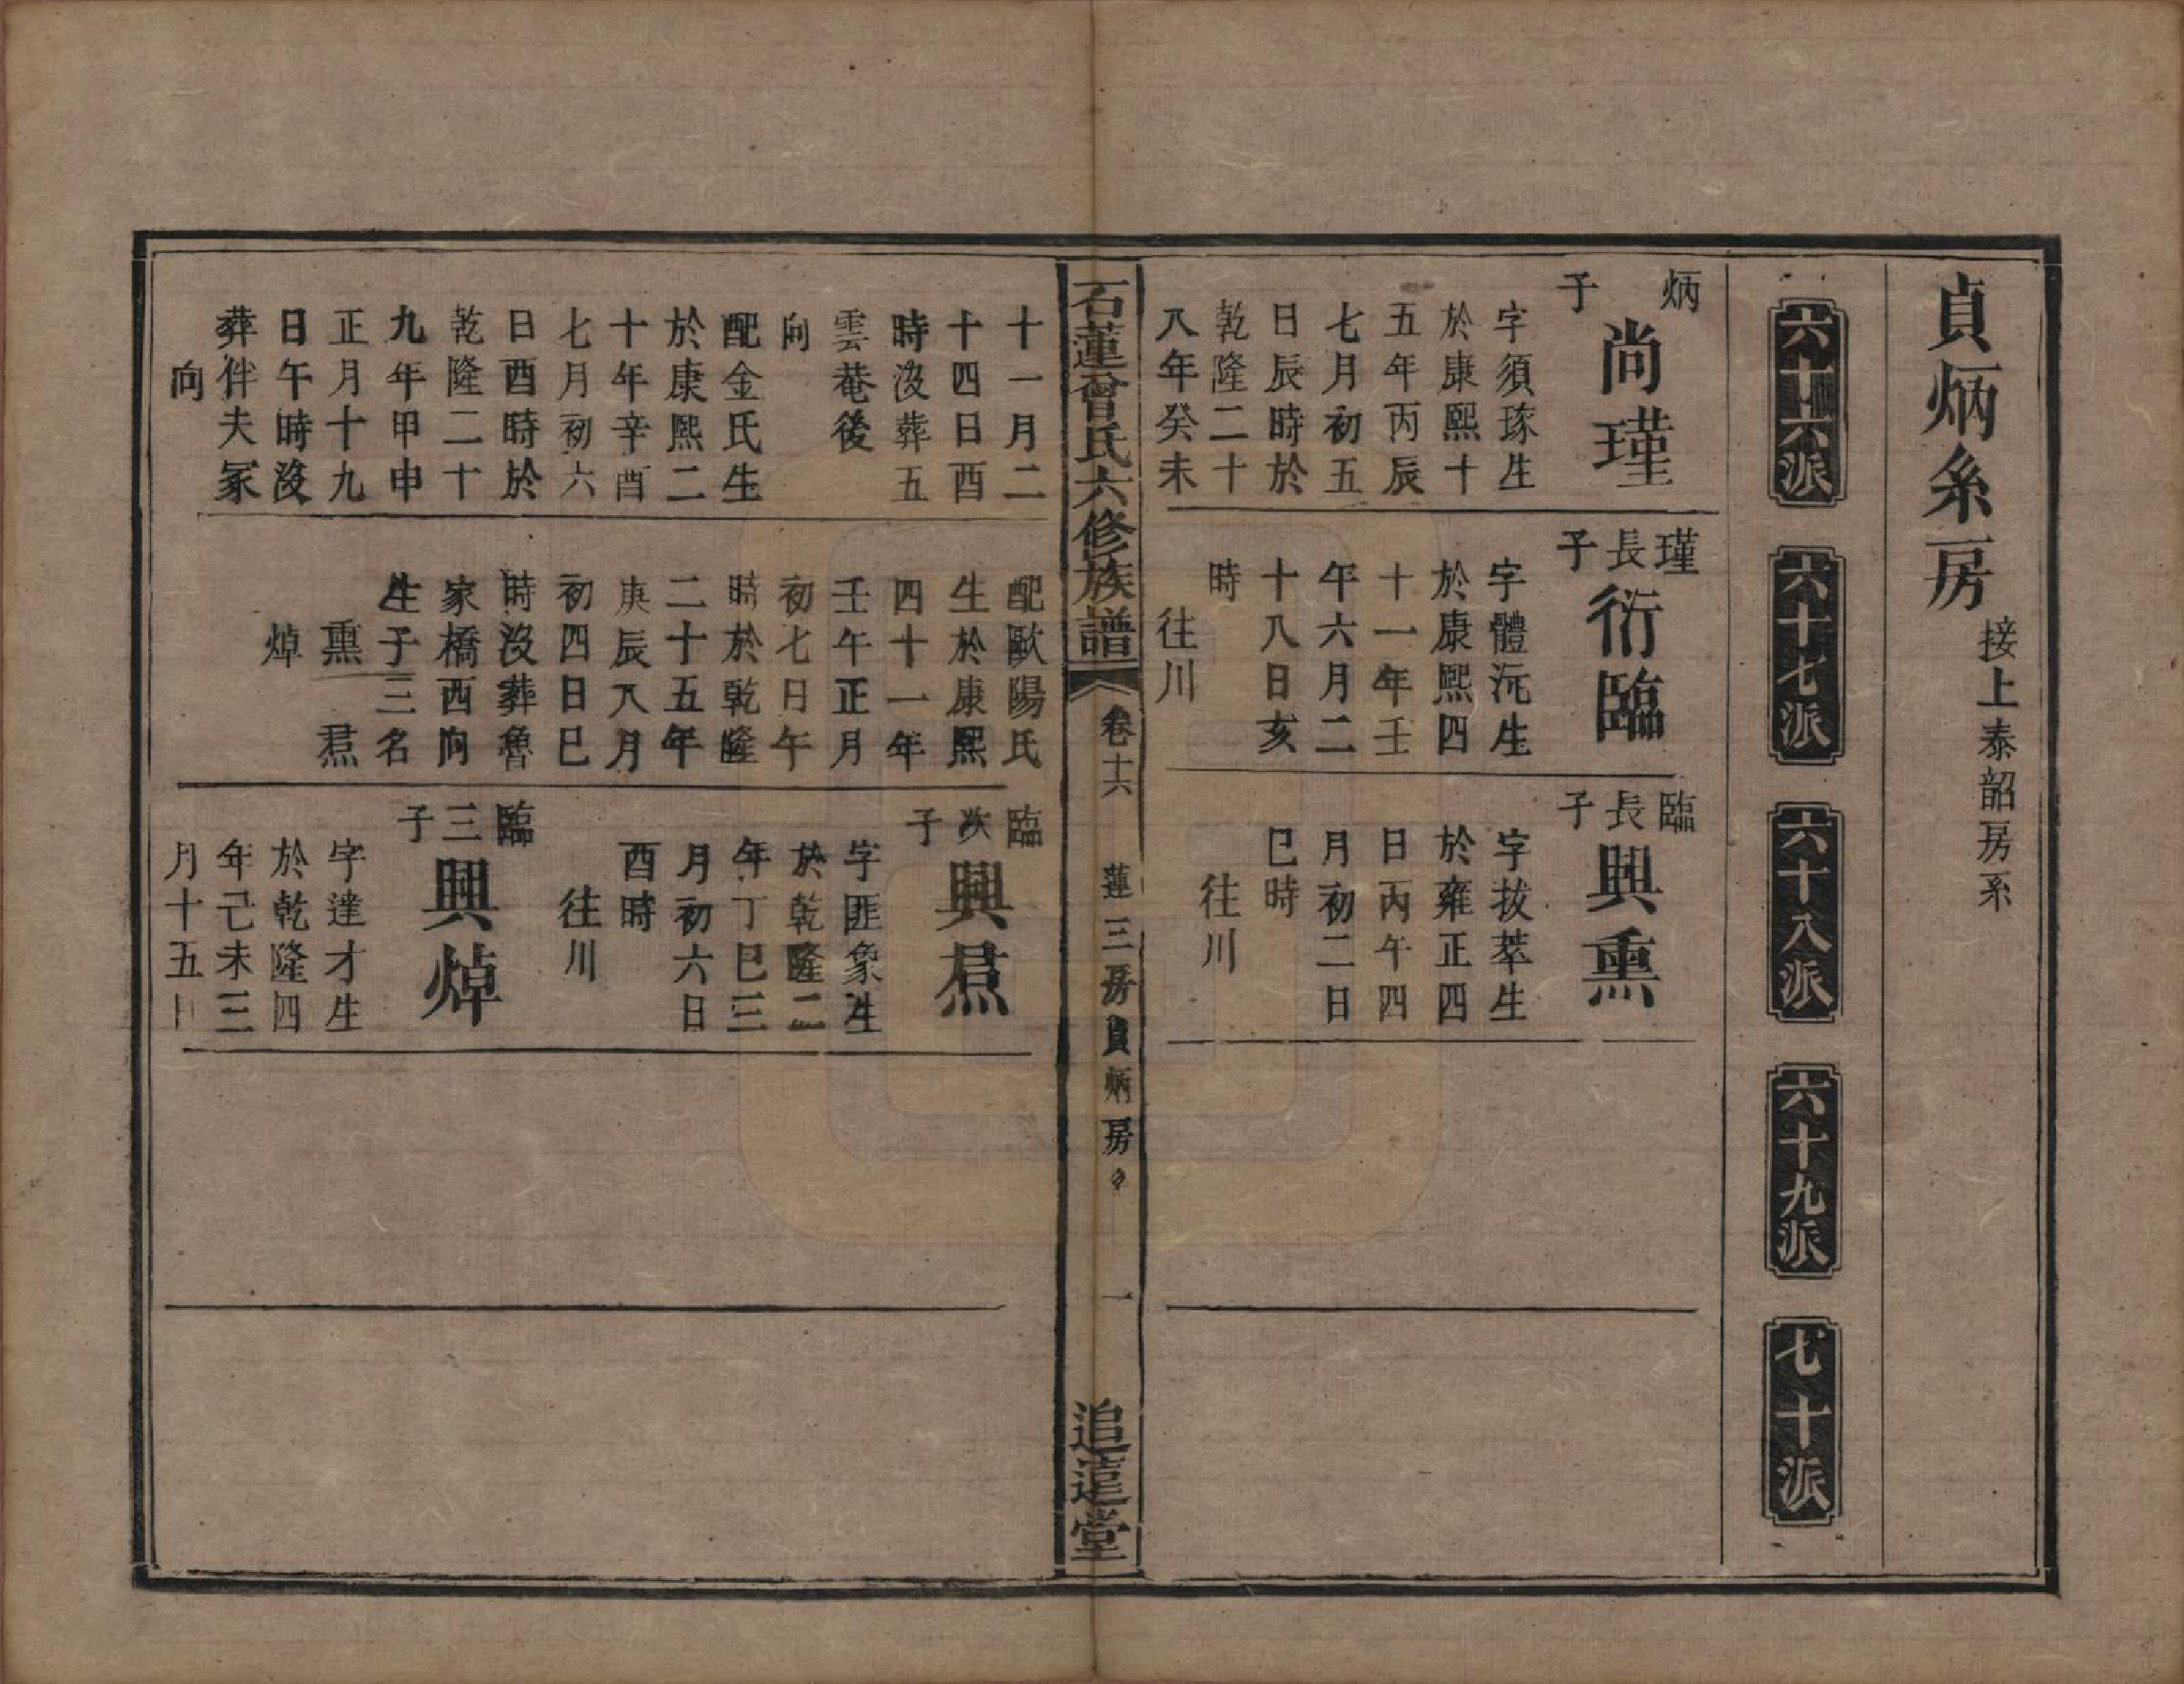 貞炳系房
接上泰韶房系
六十六派
六十七派
六十八派
六十九派
七十派
炳
子
尚瑾
字須琢生
於康熙十
五年丙辰
七月初五
日辰時於
乾隆二十
八年癸未
瑾
長
子
衍臨
字體沅生
於康熙四
十一年壬
午六月二
十八日亥
時
往川
臨
長
子
興熏
字拔萃生
於雍正四
日丙午四
月初二日
巳時
往川
石蓮曾氏六修族譜
卷十六
蓮三房貞炳房
一
追遠堂
十一月二
十四日酉
時沒葬五
雲菴後
向
配金氏生
於康熙二
十年辛酉
七月初六
日酉時於
乾隆二十
九年甲申
正月十九
日午時沒
葬伴夫冢
向
配歐陽氏
生於康熙
四十一年
壬午正月
初七日午
時於乾隆
二十五年
庚辰八月
初四日巳
時沒葬魯
家橋西向
生子三名
熏 焄
焯
臨
次
子
興焄
字匪象生
於乾隆二
年丁巳三
月初六日
酉時
往川
臨
三
子
興焯
字達才生
於乾隆四
年己未三
月十五日